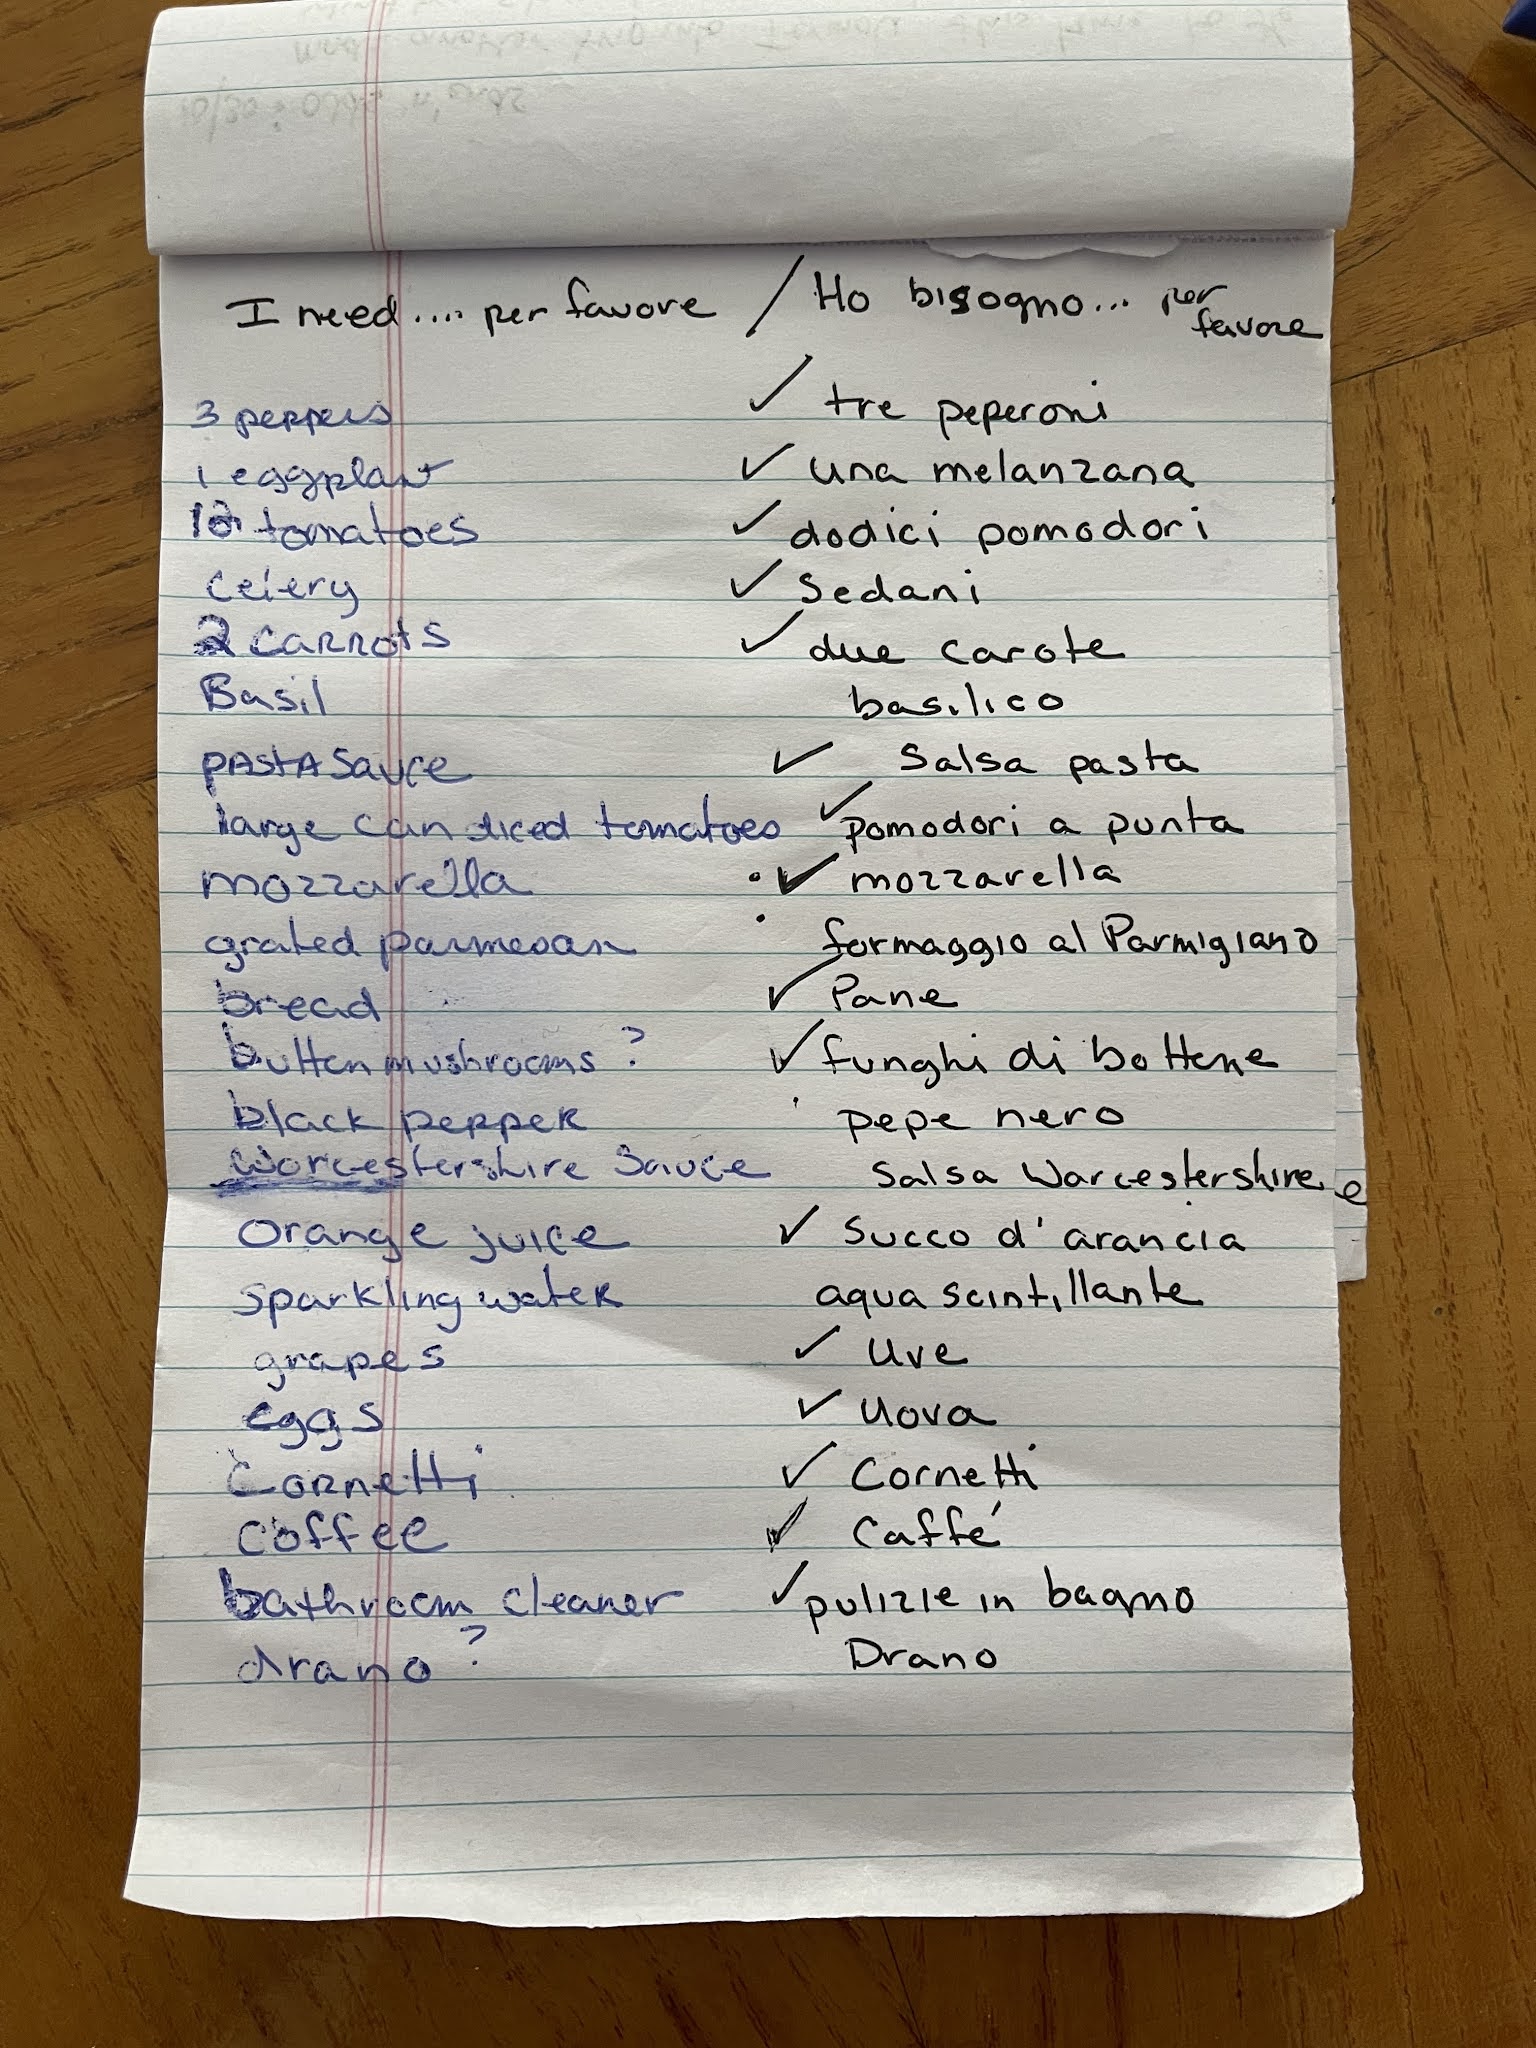 I need.... per favore / Ho bisogno... per favore
3 peppers ✓ tre peperoni
1 eggplant ✓ una melanzana
12 tomatoes ✓ dodici pomodori
celery ✓ Sedani
2 carrots ✓ due carote
Basil basilico
pasta sauce ✓ Salsa pasta
large can diced tomatoes ✓ pomodori a punta
mozzarella ✓ mozzarella
grated parmesan formaggio al Parmigiano
bread ✓ Pane
button mushrooms? ✓ funghi di bottene
black pepper pepe nero
Worcestershire Sauce Salsa Warcestershire e
Orange juice ✓ Succo d'arancia
sparkling water aqua scintillante
grapes ✓ Uve
eggs ✓ Uova
Cornetti ✓ Cornetti
Coffee ✓ Caffé
bathroom cleaner ✓ pulizie in bagno
drano? Drano